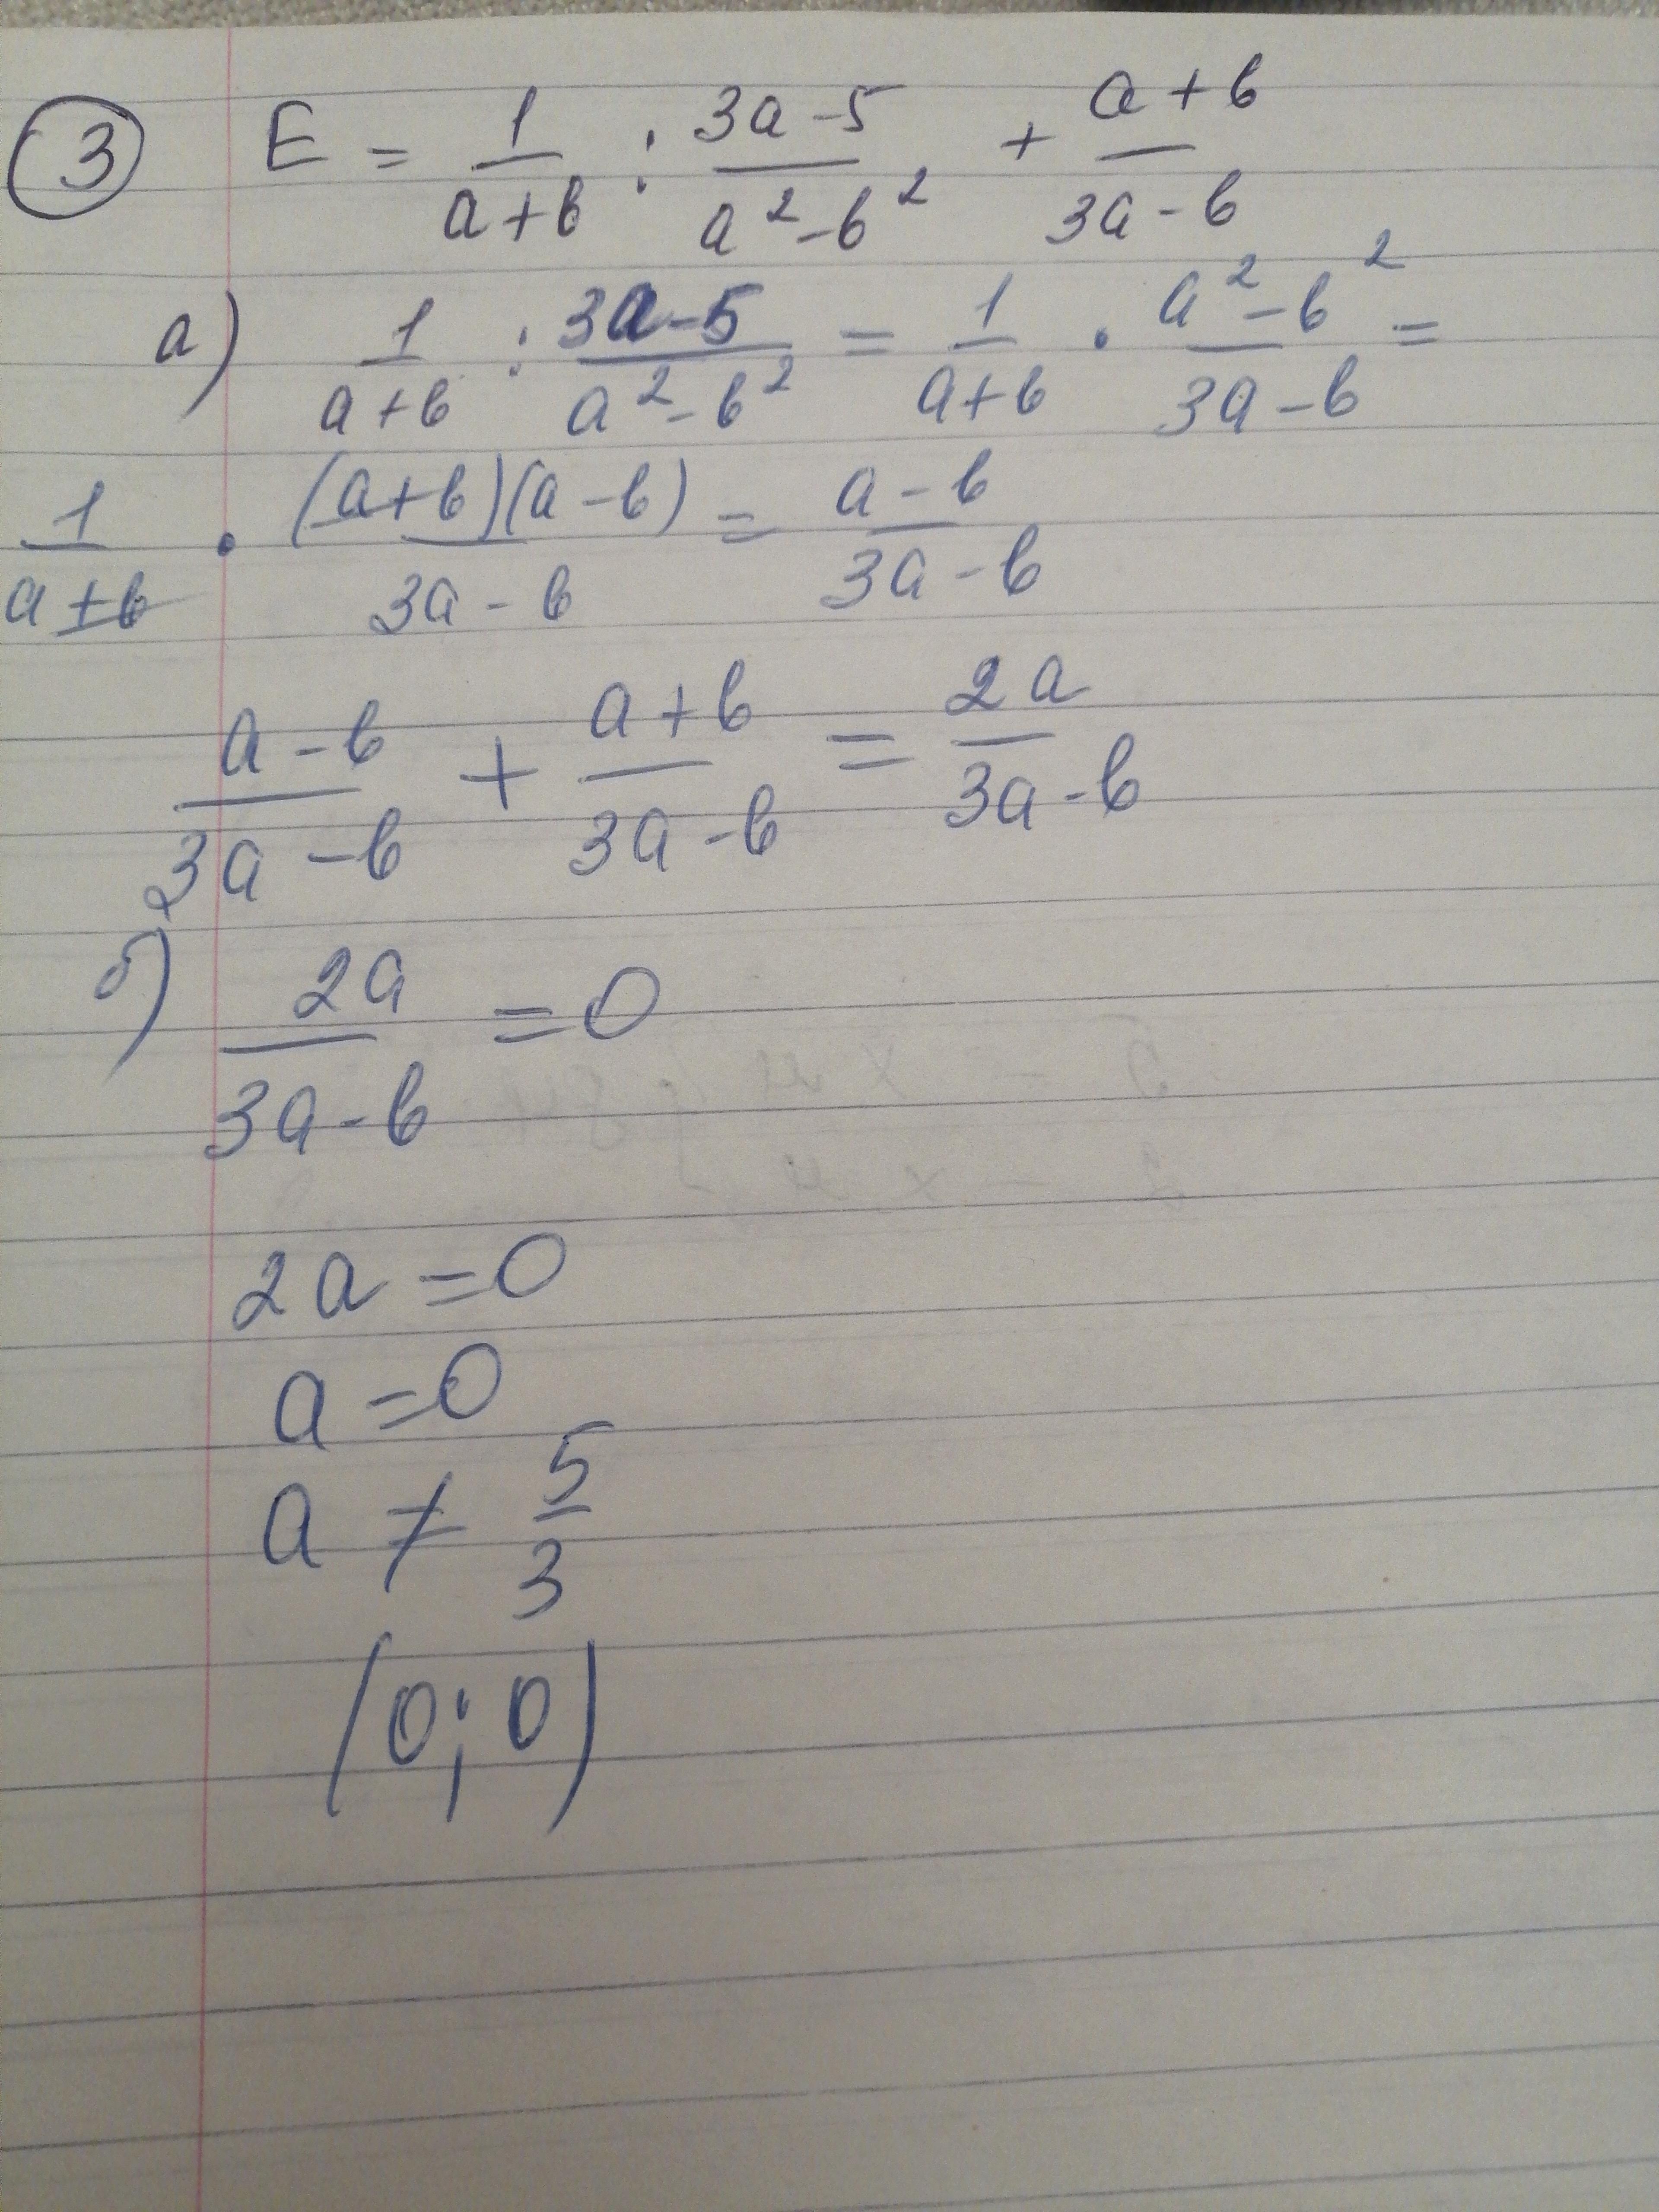 ③ E = 1/(a+b) : (3a-5)/(a²-b²) + (a+b)/(3a-b)
а) 1/(a+b) : (3a-5)/(a²-b²) = 1/(a+b) · (a²-b²)/(3a-b) =
1/(a+b) · (a+b)(a-b)/(3a-b) = (a-b)/(3a-b)
(a-b)/(3a-b) + (a+b)/(3a-b) = 2a/(3a-b)
б) 2a/(3a-b) = 0
2a = 0
a = 0
a ≠ 5/3
(0; 0)